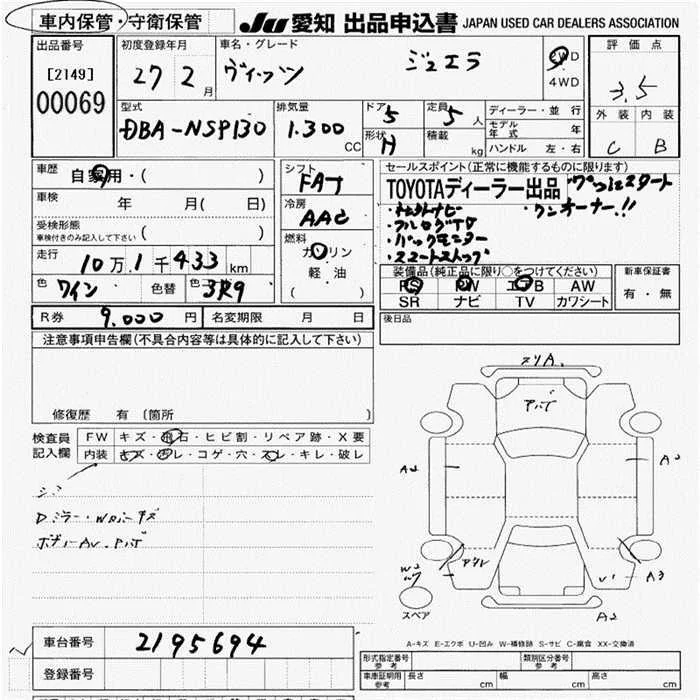 車内保管・守衛保管 JU 愛知 出品申込書 JAPAN USED CAR DEALERS ASSOCIATION
出品番号 初度登録年月 車名・グレード 評価点
[2149] 27 2月 ジュエラ 2WD 3.5
00069 4WD
型式 排気量 ドア 5 定員 5人 ディーラー・並行 外装 内装
DBA-NSP130 1.300 CC 形状 H 積載 kg モデル年式 年 C B
ハンドル 左・右
車歴 自家用・( ) シフト FAT セールスポイント(正常に機能するものに限ります)
車検 年 月( 日) 冷房 AAC TOYOTAディーラー出品
受検形態 ( ) ワンオーナー!!
車検付きのみ記入して下さい 燃料 ガソリン
走行 10万1千433km 軽・油 ・バックモニター
色 ワイン 色替 3R9 ( )
装備品(純正品に限り○をつけてください) 新車保証書
PS PW エアB AW 有・無
SR ナビ TV カワシート
R券 9.000円 名変期限 月 日 後日品
注意事項申告欄(不具合内容等は具体的に記入して下さい)
修復歴 有 〔箇所 〕
検査員記入欄 FW キズ・飛石・ヒビ割・リペア跡・X要
内装 キズ・汚レ・コゲ・穴・スレ・キレ・破レ
A2
A3
A2
スペア
A-キズ E-エクボ U-凹み W-補修跡 S-サビ C-腐食 XX-交換済
車台番号 2195694
登録番号
形式指定番号 参考 類別区分番号 参考
車庫証明用 参考 長さ cm 幅 cm 高さ cm